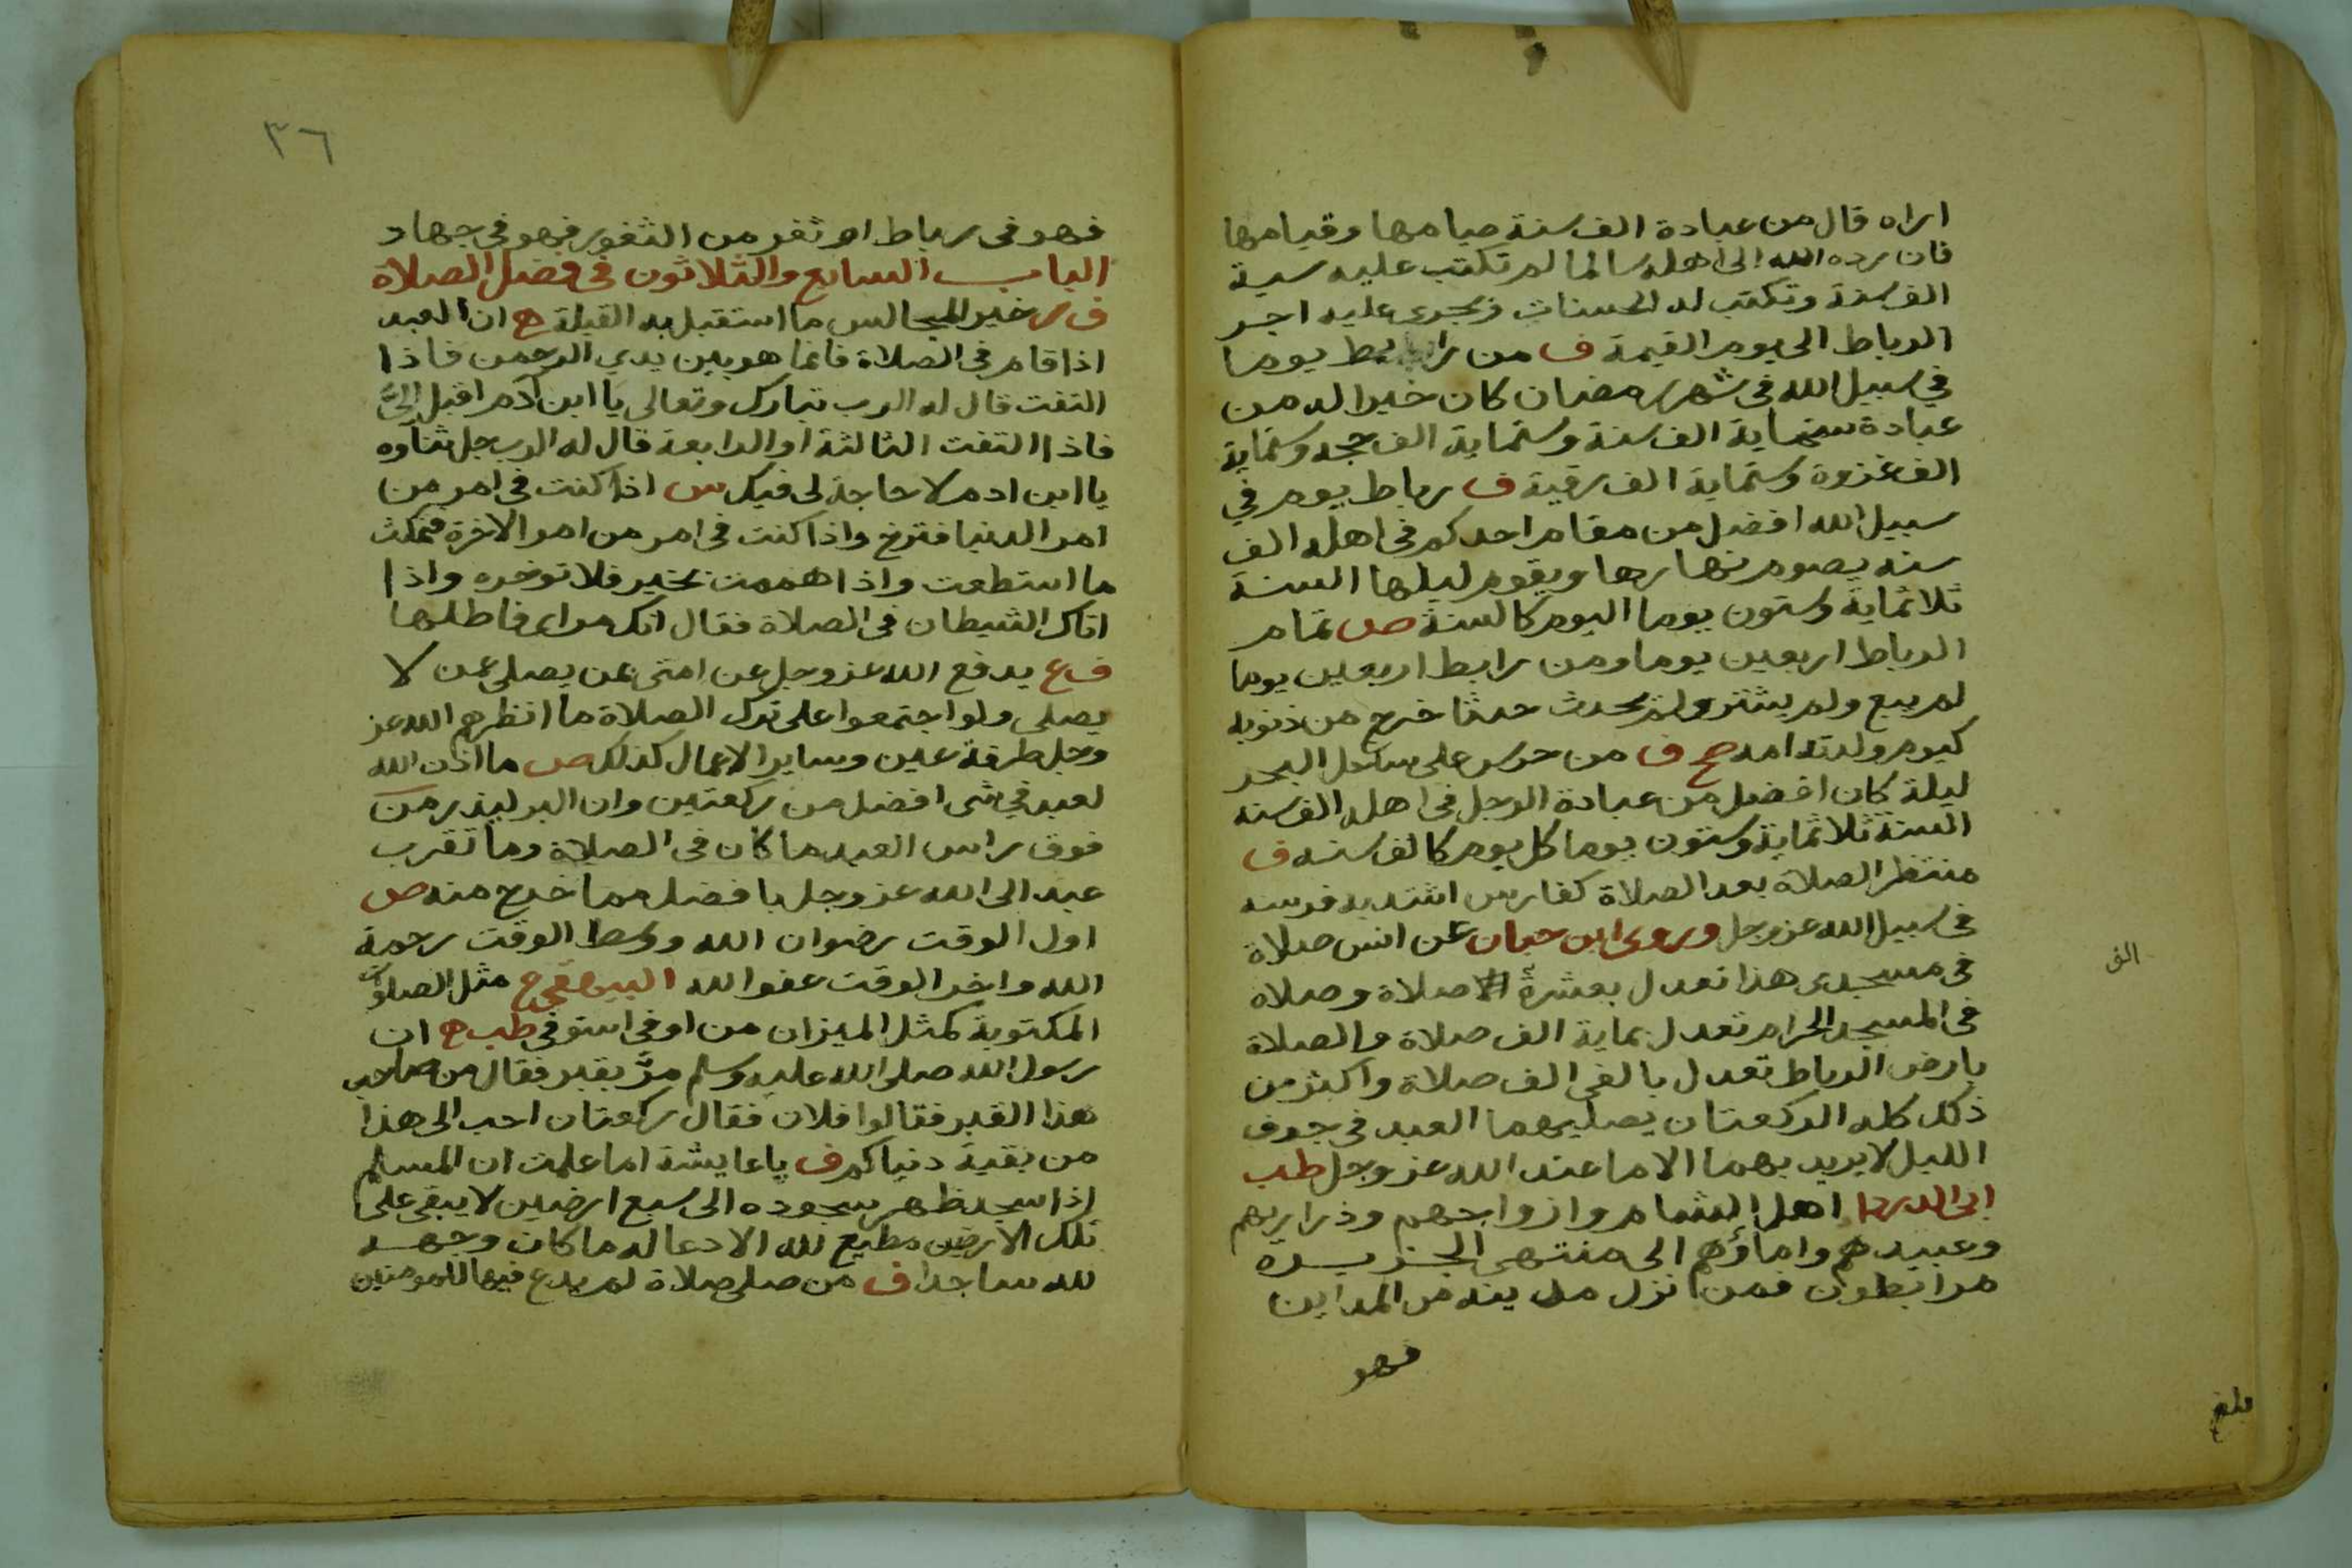 اراه قال من عبادة الف سنة صيامها وقيامها
فان رده الله الى اهله سالما لم تكتب عليه سية
الف سنة وتكتب له الحسنات ويجرى عليه اجر
الرباط الى يوم القيمة ف من رابط يوما
في سبيل الله فى شهر رمضان كان خيرا له من
عبادة ستماية الف سنة وستماية الف حجه وستماية
الف غزوة وستماية الف رقية ف رباط يوم في
سبيل الله افضل من مقام احدكم فى اهله الف
سنه يصوم نهارها ويقوم ليلها السنة
ثلاثماية وستون يوما اليوم كالسنة ص تمام
الرباط اربعين يوما ومن رابط اربعين يوما
لم يبع ولم يشتر ولم يحدث حدثا خرج من ذنوبه
كيوم ولدته امه صح ف من حرس على ساحل البحر
ليلة كان افضل من عبادة الرجل فى اهله الف سنه
السنة ثلاثماية وستون يوما كل يوم كالف سنه ف
منتظر الصلاة بعد الصلاة كفارس اشتد به فرسه
فى سبيل الله عز وجل وروى ابن حبان عن انس صلاة
فى مسجدى هذا تعدل بعشرة صلاة وصلاة
الف
فى المسجد الحرام تعدل بماية الف صلاة والصلاة
بارض الرباط تعدل بالفى الف صلاة واكثر من
ذلك كله الركعتان يصليهما العبد فى جوف
الليل لا يريد بهما الا ما عند الله عز وجل طب
ابى الدردا اهل الشام وازواجهم وذراريهم
وعبيدهم واماؤهم الى منتهى الجزيرة
مرابطون فمن نزل مدينه من المداين
فهو
بلغ
٣٦
فهو فى رباط او ثغر من الثغور فهو فى جهاد
الباب السابع والثلاثون فى فضل الصلاة
ف ر خير المجالس ما استقبل به القبلة ح ان العبد
اذا قام فى الصلاة فانما هو بين يدي الرحمن فاذا
التفت قال له الرب تبارك وتعالى يا ابن ادم اقبل الىَّ
فاذا التفت الثالثة او الرابعة قال له الرب جل ثناوه
يا ابن ادم لا حاجة لى فيك س اذا كنت فى امر من
امر الدنيا فترخ واذا كنت فى امر من امر الاخرة فتمكث
ما استطعت واذا هممت بخير فلا توخره واذا
اتاك الشيطان فى الصلاة فقال انك مراى فاطلها
ف ع يدفع الله عز وجل عن امتى بمن يصلى عمن لا
يصلى ولو اجتمعوا على ترك الصلاة ما انظرهم الله عز
وجل طرفة عين وساير الاعمال كذلك ص ما اذن الله
لعبد في شى افضل من ركعتين وان البر ليذر من
فوق راس العبد ما كان فى الصلاة وما تقرب
عبد الى الله عز وجل بافضل مما خرج منه ص
اول الوقت رضوان الله ووسط الوقت رحمة
الله واخر الوقت عفو الله البيهقى ح مثل الصلوات
المكتوبة كمثل الميزان من اوفى استوفى طب ح ان
رسول الله صلى الله عليه وسلم مرَّ بقبر فقال من صاحب
هذا القبر فقالوا فلان فقال ركعتان احب الى هذا
من بقية دنياكم ف يا عايشة اما علمت ان المسلم
اذا سجد ظهر سجوده الى سبع ارضين لا يبقى على
تلك الارضين مطيع لله الا دعا له ما كان وجهه
لله ساجدا ف من صلى صلاة لم يدع فيها للمومنين